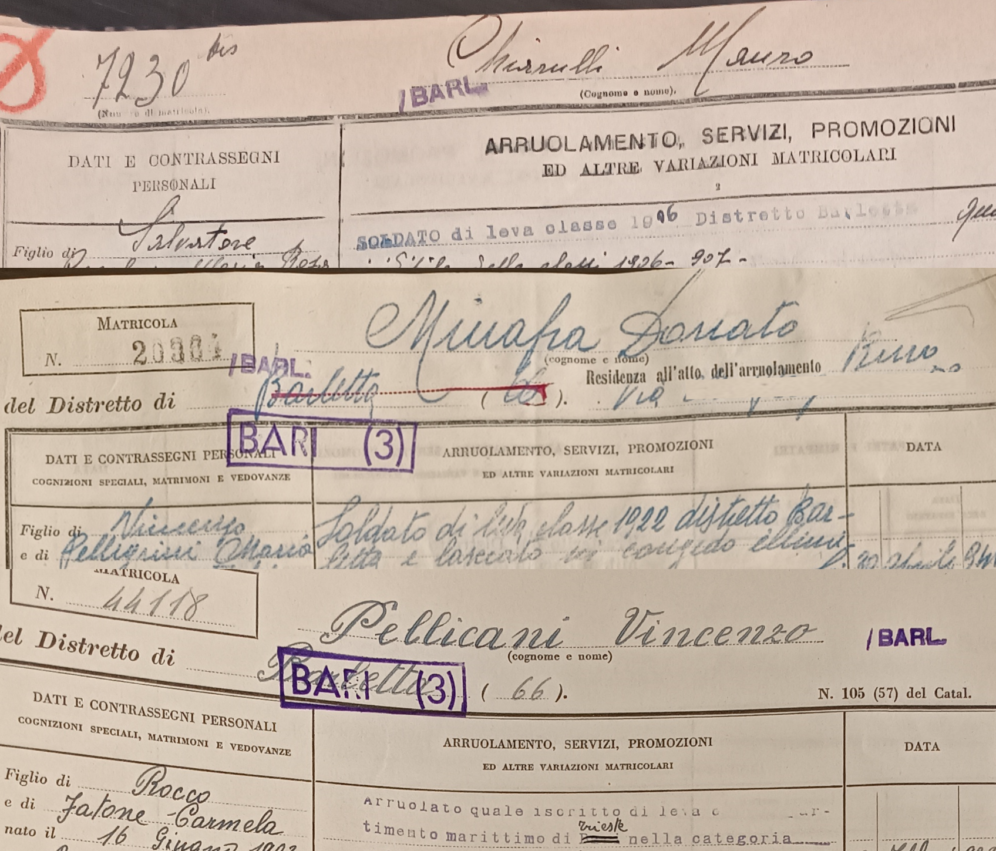 7230 bis
Chirulli Mauro
/BARL.
(Cognome e nome).
DATI E CONTRASSEGNI
PERSONALI
ARRUOLAMENTO, SERVIZI, PROMOZIONI
ED ALTRE VARIAZIONI MATRICOLARI
2
Figlio di Salvatore
SOLDATO di leva classe 1906 Distretto Barletta
classi 1906-907-
MATRICOLA
N.
Minafra Donato
(cognome e nome)
/BARL.
Residenza all'atto dell'arruolamento
del Distretto di Barletta ( ).
Via
BARI (3)
DATI E CONTRASSEGNI PERSONALI
COGNIZIONI SPECIALI, MATRIMONI E VEDOVANZE
ARRUOLAMENTO, SERVIZI, PROMOZIONI
ED ALTRE VARIAZIONI MATRICOLARI
DATA
Figlio di Vincenzo
e di Pellegrini Maria
Soldato di leva classe 1922 distretto Bar-
letta e lasciato in congedo
MATRICOLA
N. 44118
Pellicani Vincenzo
(cognome e nome)
/BARL.
del Distretto di Barletta
BARI (3)
( 66 ).
N. 105 (57) del Catal.
DATI E CONTRASSEGNI PERSONALI
COGNIZIONI SPECIALI, MATRIMONI E VEDOVANZE
ARRUOLAMENTO, SERVIZI, PROMOZIONI
ED ALTRE VARIAZIONI MATRICOLARI
DATA
Figlio di Rocco
e di Fatone Carmela
nato il 16 Giugno
Arruolato quale iscritto di leva
timento marittimo di Trieste nella categoria